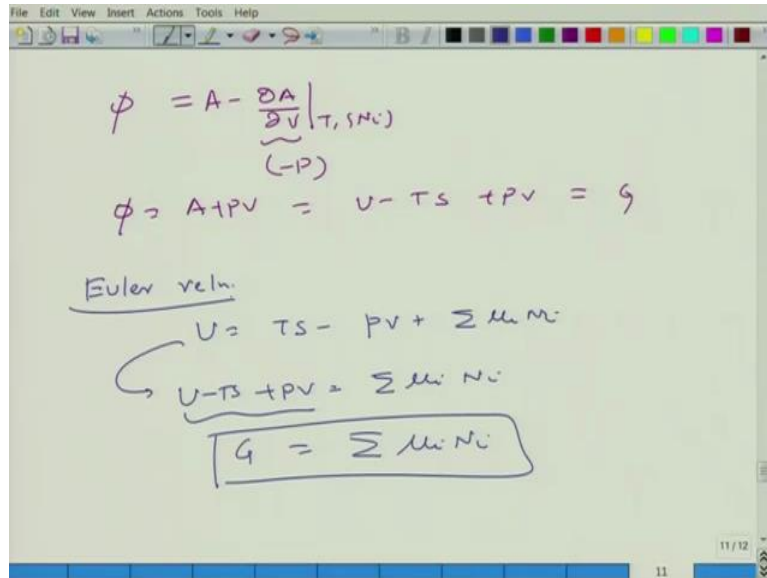 File Edit View Insert Actions Tools Help
φ = A - ∂A/∂V |T, {Ni}
(-P)
φ = A+PV = U - TS + PV = G
Euler reln.
U = TS - PV + Σ μi Ni
U-TS+PV = Σ μi Ni
G = Σ μi Ni
11/12
11